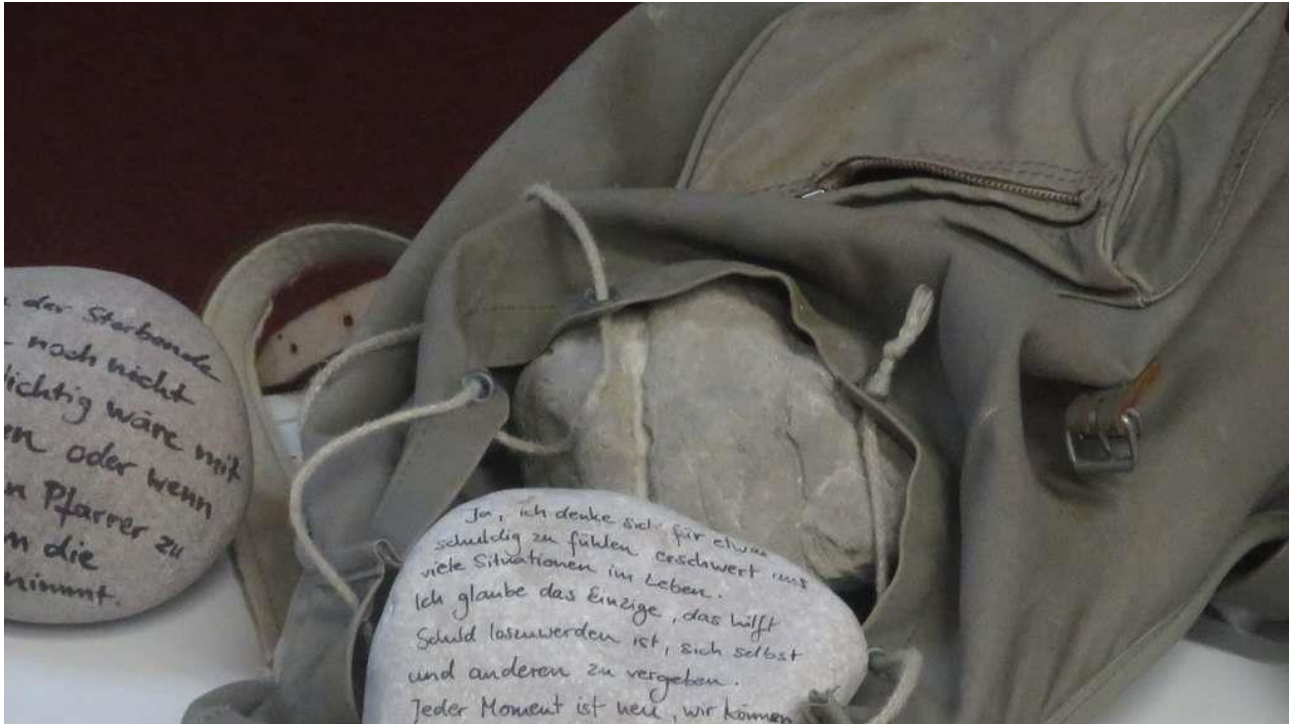 der Sterbende
noch nicht
wäre mit
oder wenn
Pfarrer zu
die
nimmt.
Ja, ich denke sich für etwas
schuldig zu fühlen erschwert uns
viele Situationen im Leben.
Ich glaube das Einzige, das hilft
Schuld loszuwerden ist, sich selbst
und anderen zu vergeben.
Jeder Moment ist neu, wir können